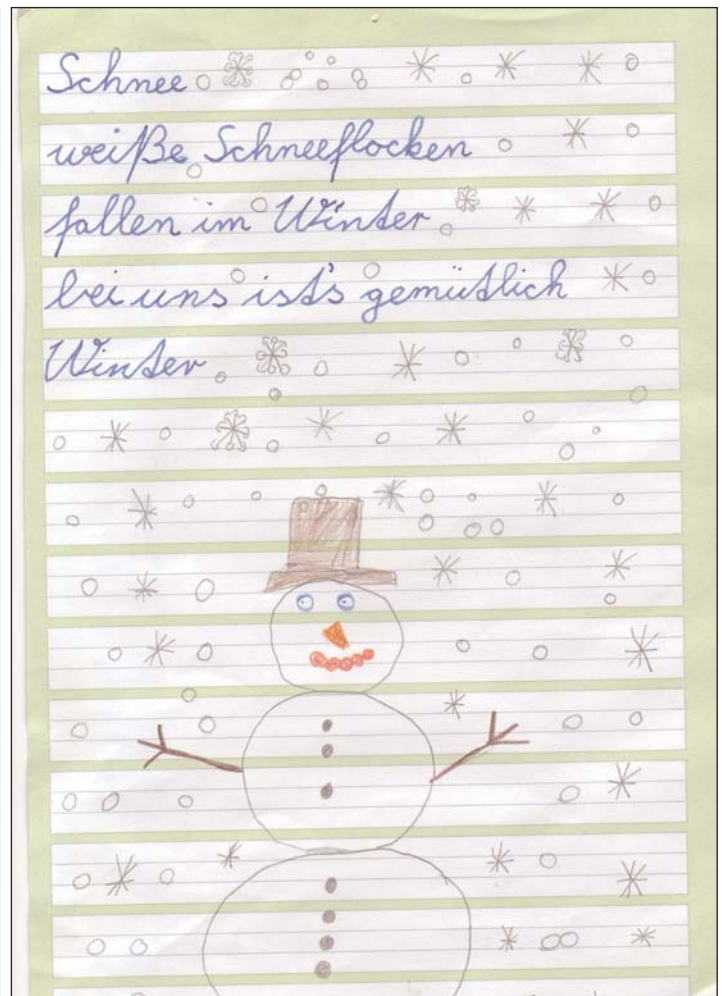 Schnee
weiße Schneeflocken
fallen im Winter
bei uns ist's gemütlich
Winter